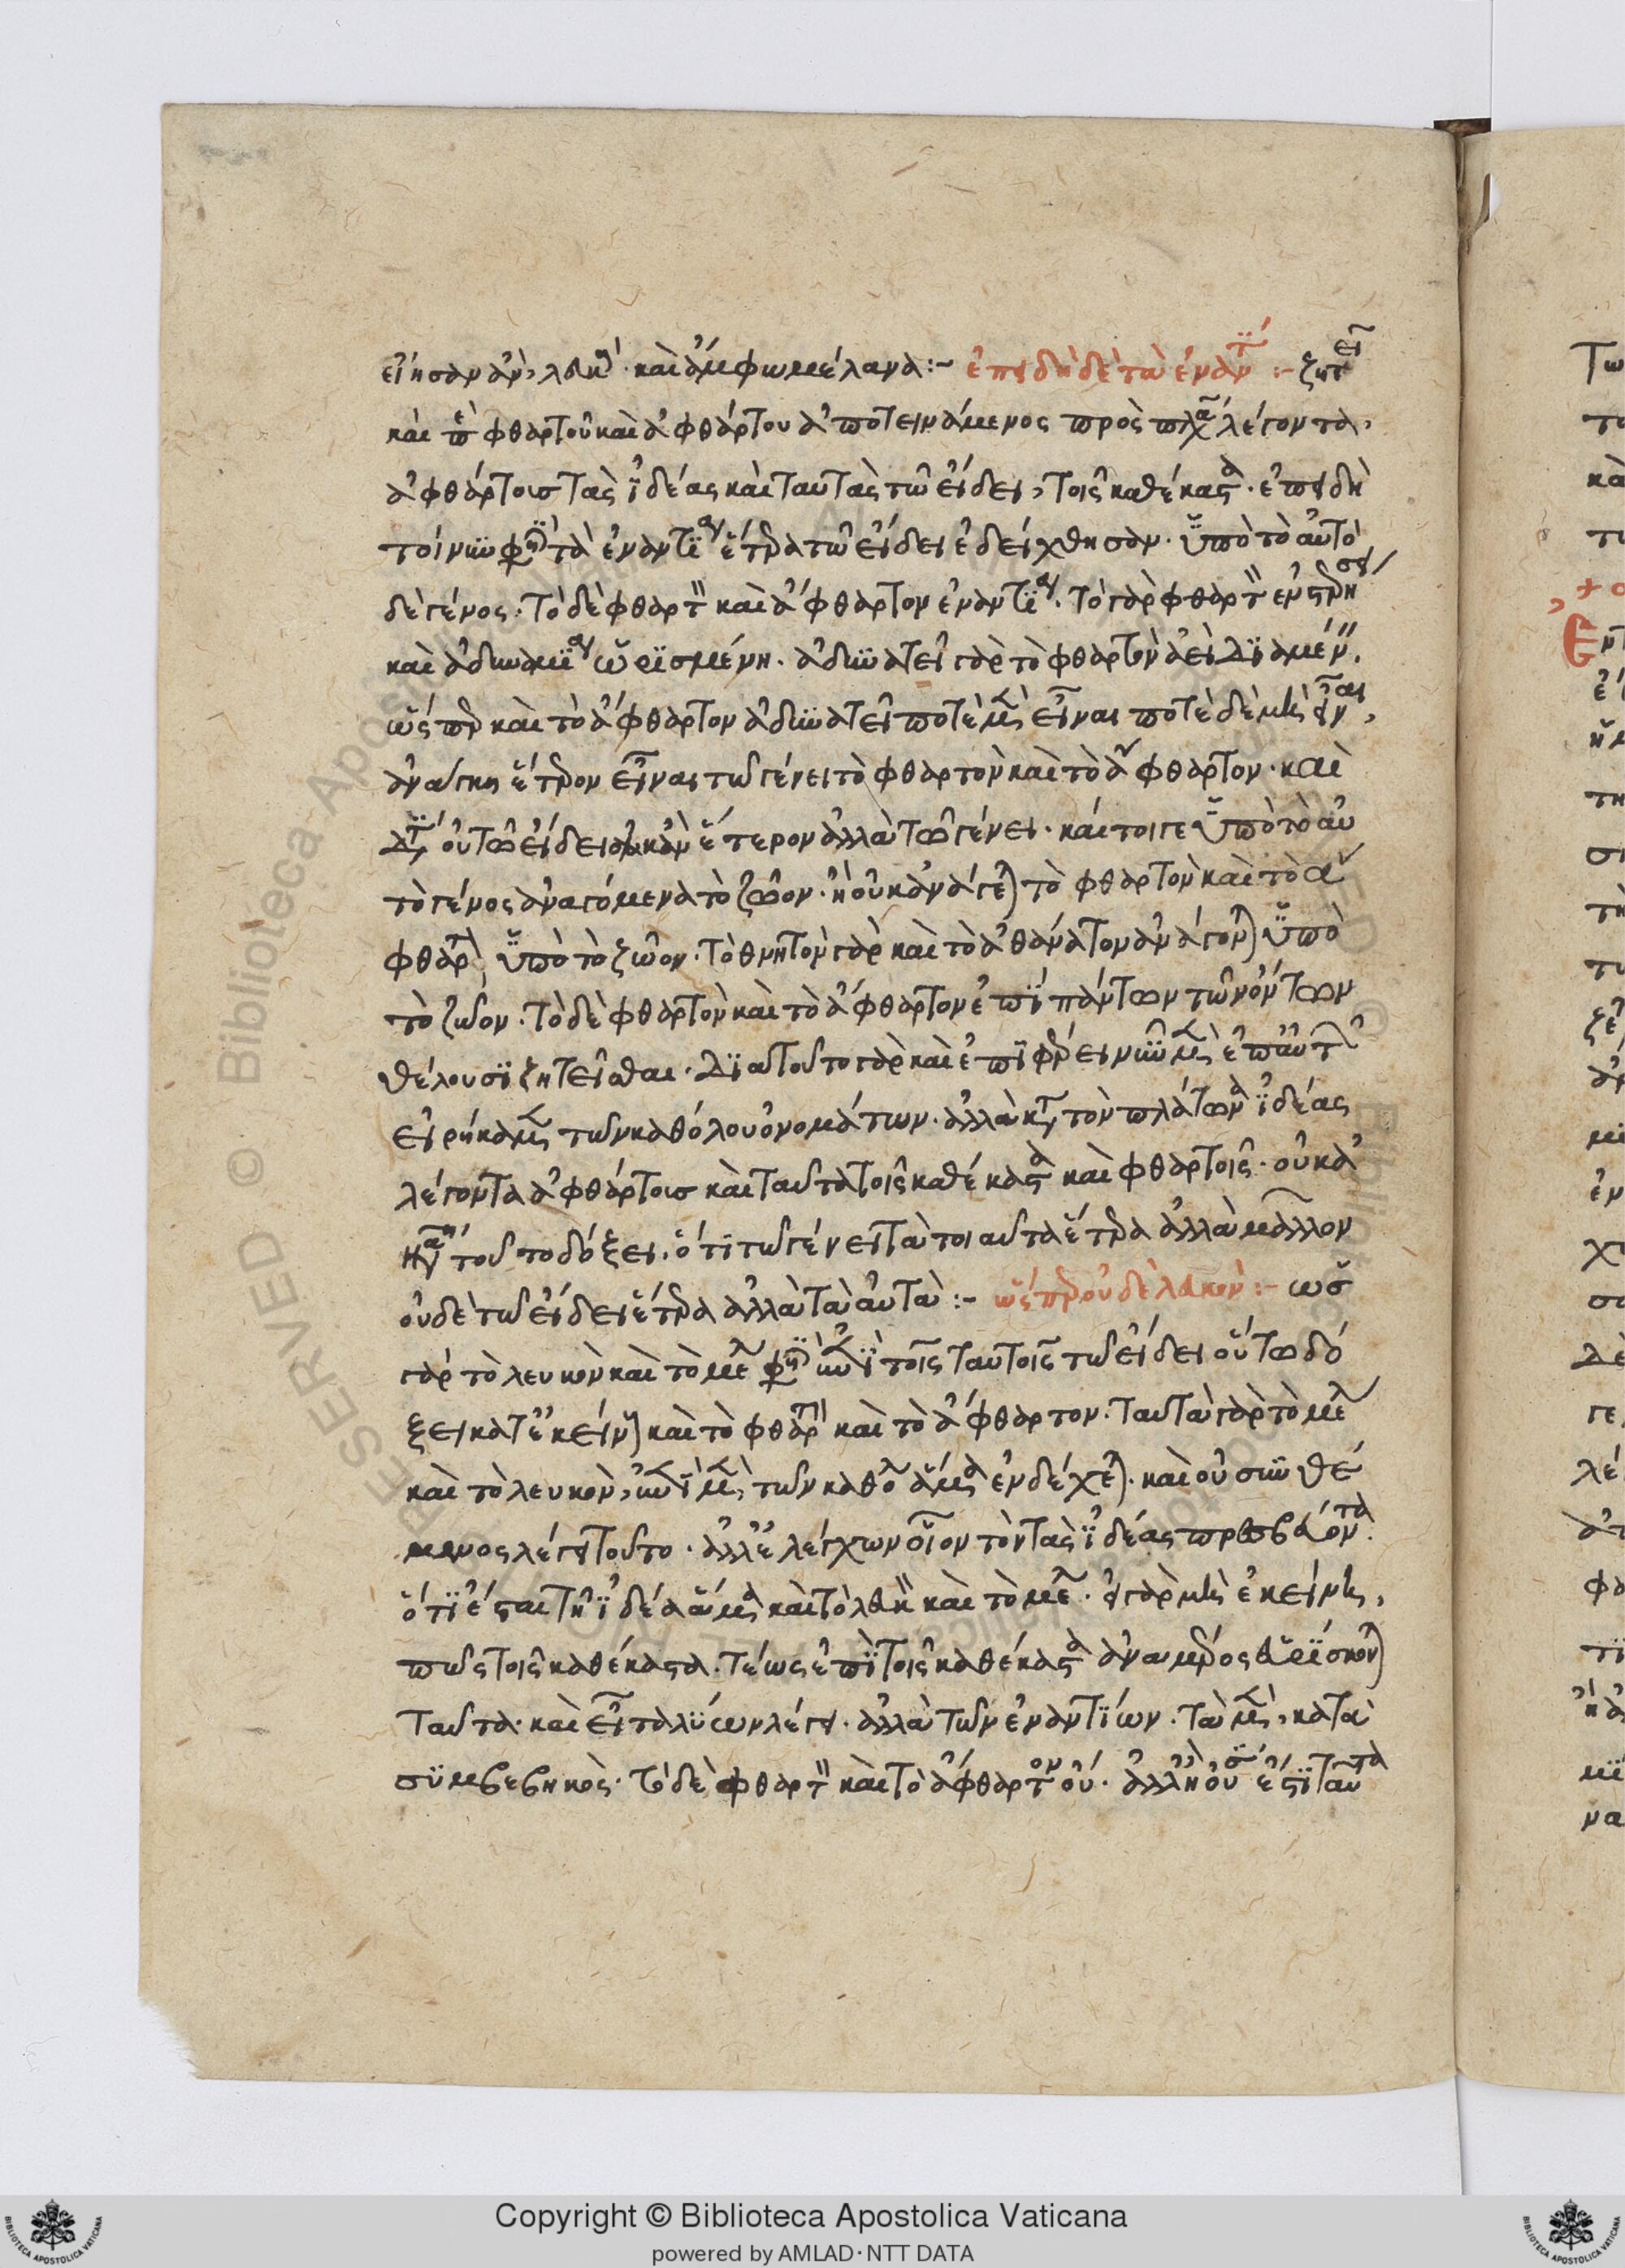 εἴησαν ἂν, λευκὰ καὶ ἄμφω μέλανα :- ἐπειδὴ δὲ τὰ ἐναντία :- ζητεῖ
καὶ περὶ φθαρτοῦ καὶ ἀφθάρτου ἀποτεινάμενος πρὸς πλάτωνα λέγοντα,
ἀφθάρτοις τὰς ἰδέας καὶ ταυτὰς τῶ εἴδει, τοῖς καθέκαστα. ἐπειδὴ
τοίνυν φησὶ τὰ ἐναντία ἕτερα τῶ εἴδει ἐδείχθησαν. ὑπὸ τὸ αὐτὸ
δὲ γένος. τὸ δὲ φθαρτὸν καὶ ἄφθαρτον ἐναντία. τὸ γὰρ φθαρτὸν ἐν στερήσει
καὶ ἀδυναμία ὡρισμένη. ἀδυνατεῖ γὰρ τὸ φθαρτὸν ἀεὶ διαμένειν.
ὥσπερ καὶ τὸ ἄφθαρτον ἀδυνατεῖ ποτὲ μὲν εἶναι ποτὲ δὲ μὴ εἶναι,
ἀνάγκη ἕτερον εἶναι τῶ γένει τὸ φθαρτὸν καὶ τὸ ἄφθαρτον. καὶ
διατί οὐ τῶ εἴδει ἕτερον ἀλλὰ τῶ γένει. καίτοιγε ὑπὸ τὸ αὐ
τὸ γένος ἀναγόμενα τὸ ζῶον. ἢ οὐκ ἀνάγεται τὸ φθαρτὸν καὶ τὸ ἄ
φθαρτον ὑπὸ τὸ ζῶον. τὸ θνητὸν γὰρ καὶ τὸ ἀθάνατον ἀνάγονται ὑπὸ
τὸ ζῶον. τὸ δὲ φθαρτὸν καὶ τὸ ἄφθαρτον ἐπὶ πάντων τῶν ὄντων
θέλουσι ζητεῖσθαι. διατοῦτο γὰρ καὶ ἐπιφέρει νῦν μὲν ἐπαυτῶν
εἰρήκαμεν τῶν καθόλου ὀνομάτων. ἀλλὰ κατὰ τὸν πλάτωνα ἰδέας
λέγοντα ἀφθάρτοις καὶ ταυτὰ τοῖς καθέκαστα καὶ φθαρτοῖς. οὐκ ἀ
ναγκαῖον τοῦτο δόξει. ὅτι τῶ γένει τὰ τοιαῦτα ἕτερα ἀλλὰ μᾶλλον
οὐδὲ τῶ εἴδει ἕτερα ἀλλὰ ταὐτὰ :- ὥσπερ οὐδὲ λευκὸν :- ὡς
γὰρ τὸ λευκὸν καὶ τὸ μέλαν φησὶν τοῖς ταὐτοῖς τῶ εἴδει οὕτω δό
ξει κατεκείνην καὶ τὸ φθαρτὸν καὶ τὸ ἄφθαρτον. ταῦτα γὰρ τὸ μέλαν
καὶ τὸ λευκὸν, τῶν καθόλου ἅμα ἐνδέχεται. καὶ οὐ συντιθέ
μενος λέγει τοῦτο. ἀλλ' ἐλέγχων οἷον τὸν τὰς ἰδέας πρεσβεύοντα.
ὅτι ἔσται τῆ ἰδέα ἅμα καὶ τὸ λευκὸν καὶ τὸ μέλαν. εἰ γὰρ μὴ ἐκείνη,
πῶς τοῖς καθέκαστα. τέως ἐπὶ τοῖς καθέκαστα ἀναμέρος εὑρίσκονται
ταῦτα. καὶ εἶτα λύων λέγει. ἀλλὰ τῶν ἐναντίων. τὰ μὲν, κατὰ
συμβεβηκὸς. τὸ δὲ φθαρτὸν καὶ τὸ ἄφθαρτον οὔ. ἀλλ' ἢ οὐσία ἐστὶ ταῦτα